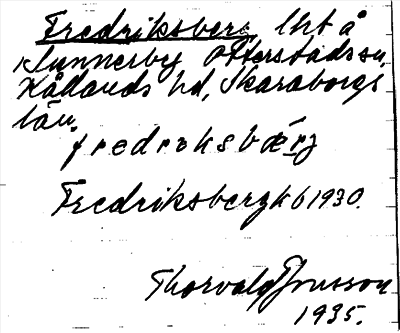 Fredriksberg, lht å
Klunnerby Otterstads sn,
Kållands hd, Skaraborgs
län.
fredreksbærj
Fredriksberg kb 1930.
Thorvald Jonsson
1935.